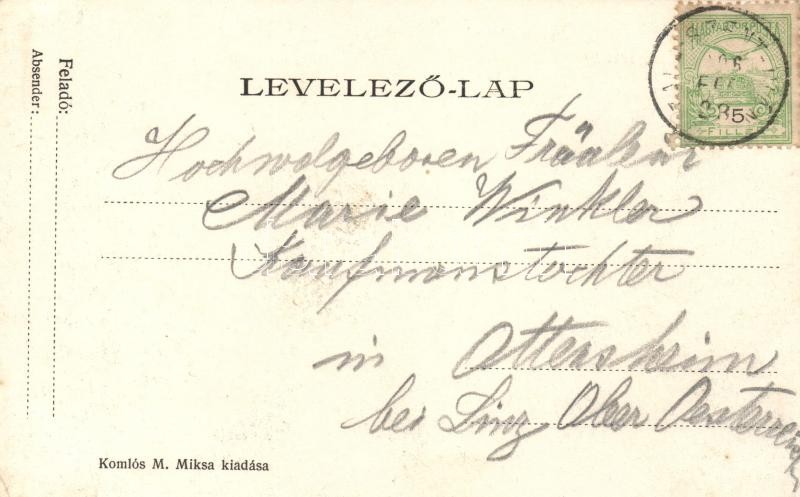 Feladó:
Absender:
LEVELEZŐ-LAP
MAGYAR KIR. POSTA
5
FILLÉR
Hochwolgeboren
Marie Winkler
Kaufmonstochter
in Ottersheim
bei Linz Ober Oesterreich
Komlós M. Miksa kiadása